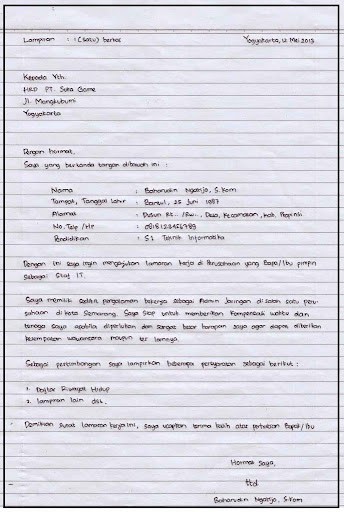 Lampiran : 1 (satu) berkas Yogyakarta, 12 Mei 2013
Kepada Yth.
HRD PT. Suka Game
Jl. Mangkubumi
Yogyakarta
Dengan hormat,
Saya yang bertanda tangan dibawah ini :
Nama : Baharudin Ngatijo, S.Kom
Tempat, Tanggal Lahir : Bantul, 25 Juni 1987
Alamat : Dusun Rt.. /Rw.., Desa, Kecamatan, Kab, Propinsi
No. Telp /HP : 0818123456789
Pendidikan : S1 Teknik Informatika
Dengan ini saya ingin mengajukan lamaran kerja di Perusahaan yang Bapak/Ibu pimpin
Sebagai Staf IT.
Saya memiliki sedikit pengalaman bekerja sebagai Admin Jaringan di salah satu peru-
sahaan di kota Semarang. Saya siap untuk memberikan kompensasi waktu dan
tenaga saya apabila diperlukan dan sangat besar harapan saya agar dapat diberikan
kesempatan wawancara maupun tes lainnya.
Sebagai pertimbangan saya lampirkan beberapa persyaratan sebagai berikut :
1. Daftar Riwayat Hidup
2. lampiran lain dst.
Demikian surat lamaran kerja ini, saya ucapkan terima kasih atas perhatian Bapak/Ibu
Hormat Saya,
ttd
Baharudin Ngatijo, S.Kom